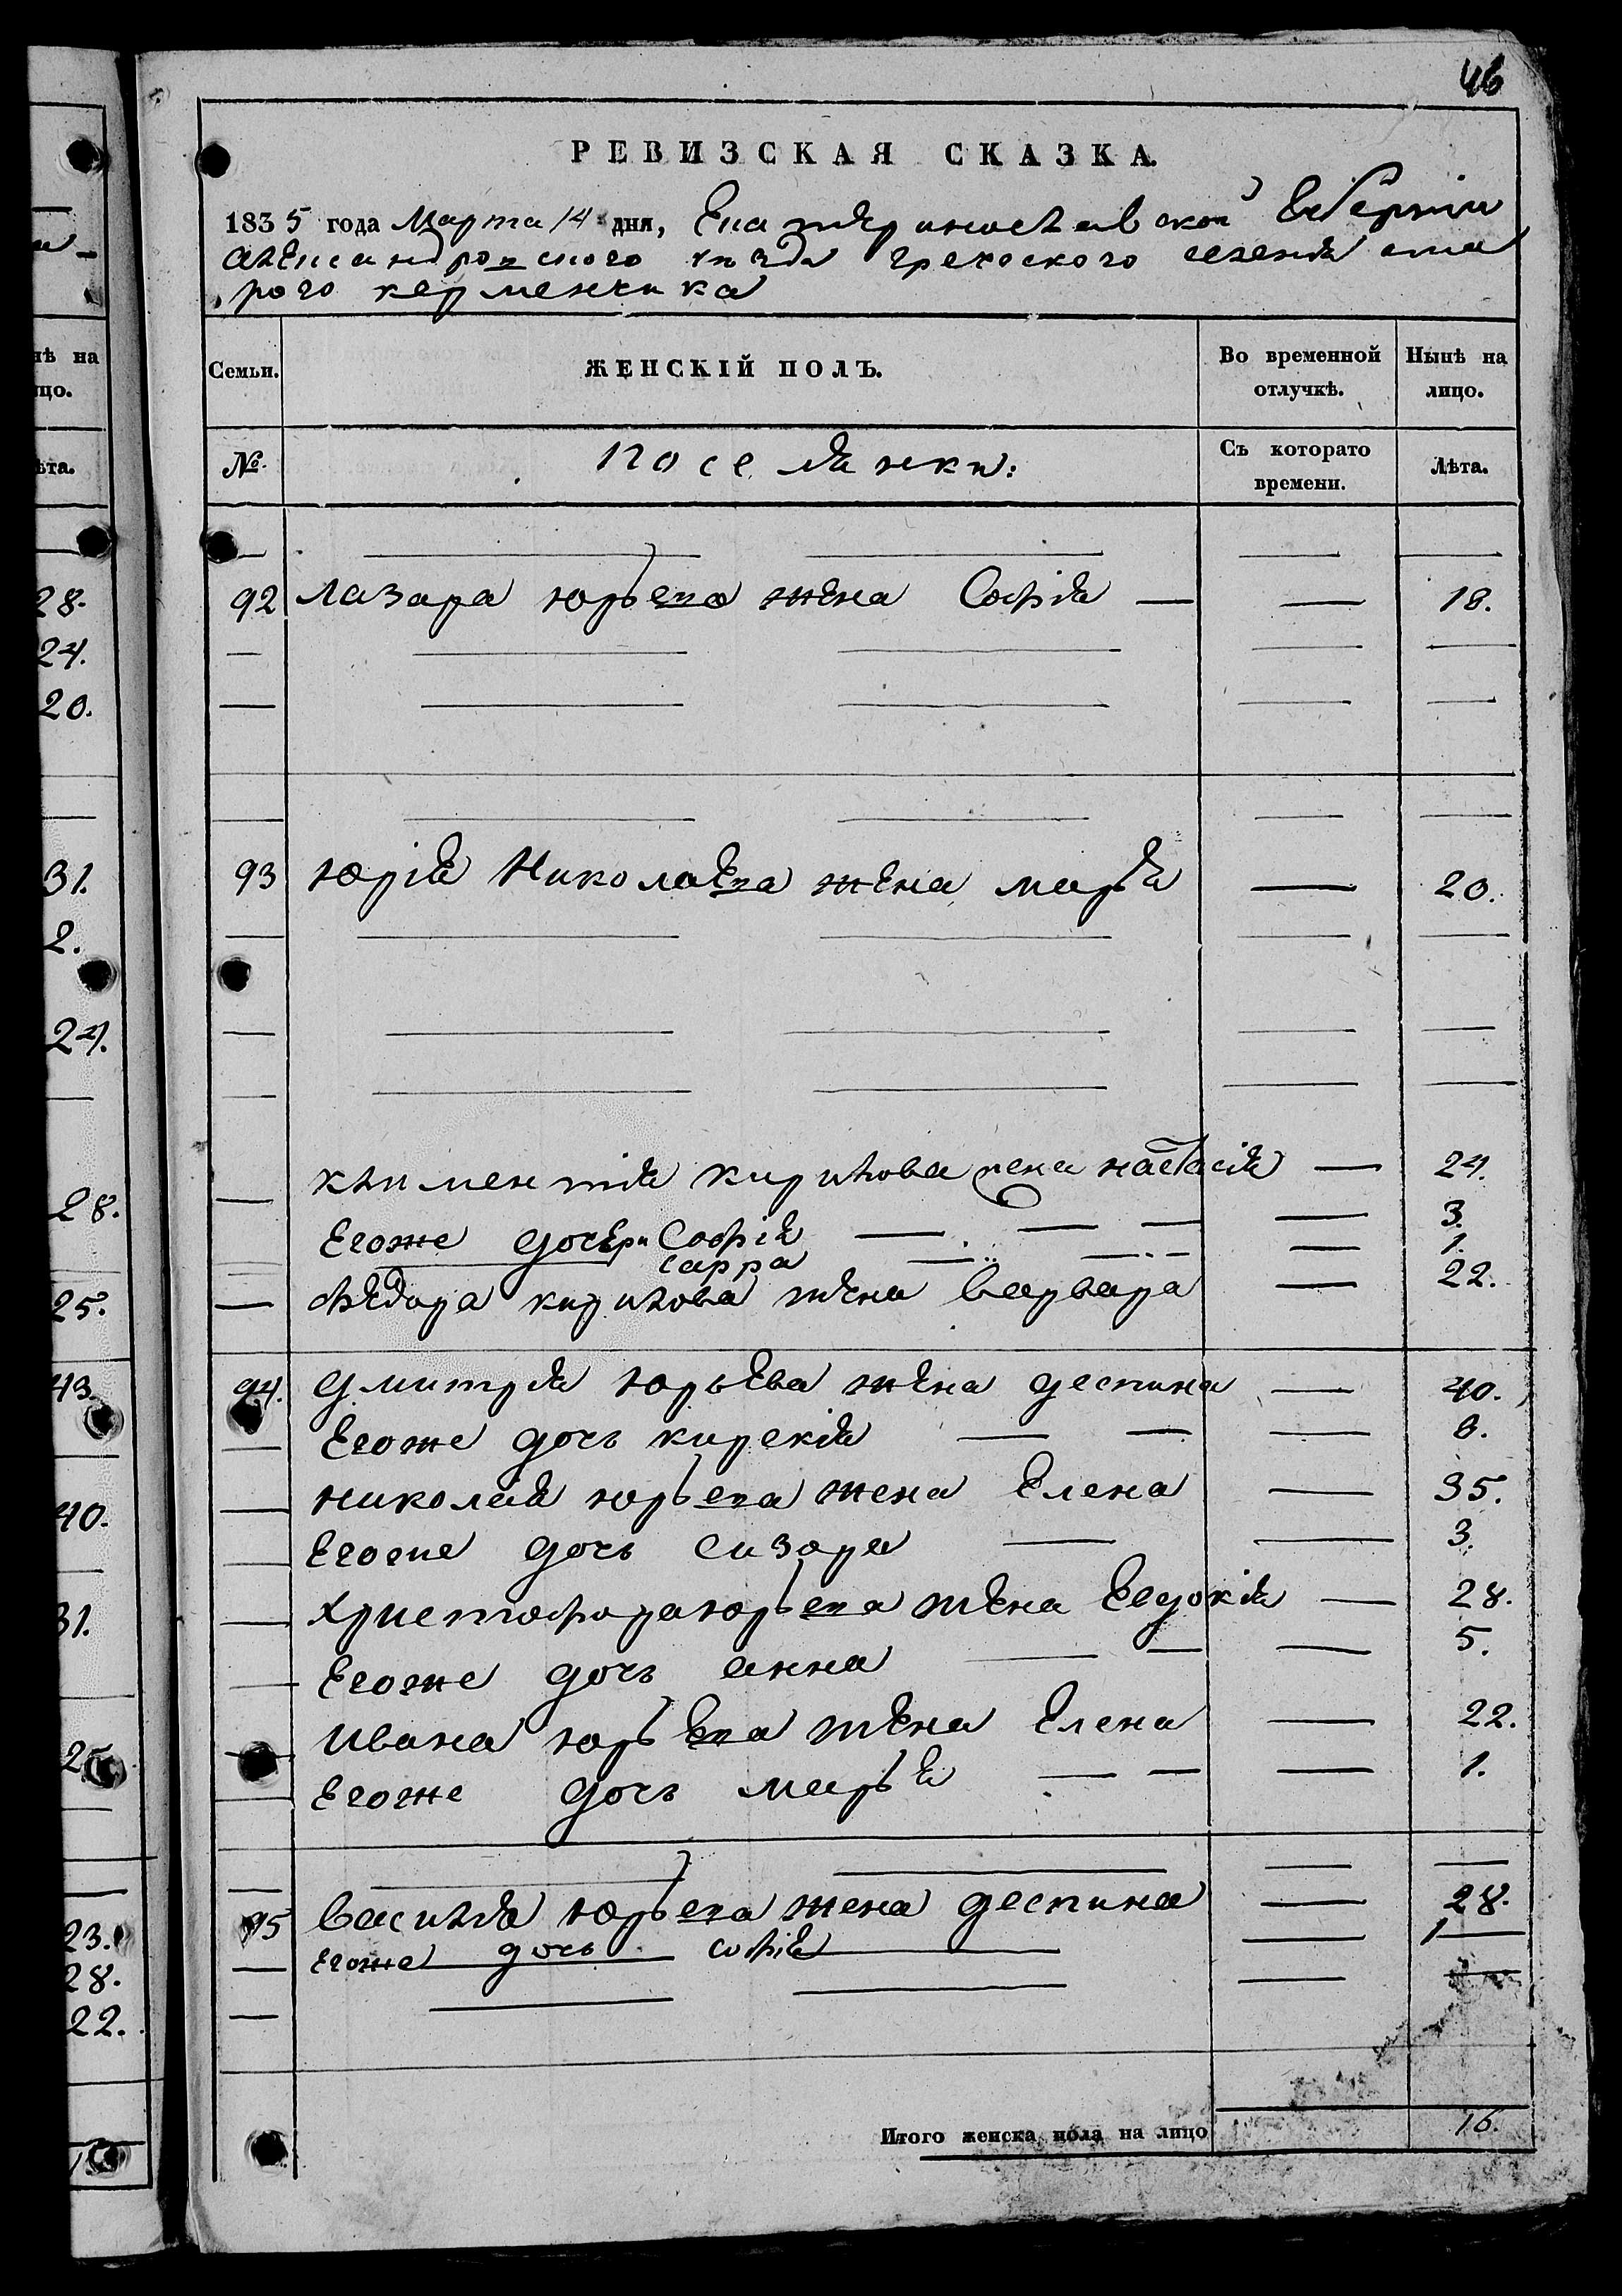 46
РЕВИЗСКАЯ СКАЗКА.
1835 года Марта 14 дня, Екатериновславской Губерніи
Александровского уѣзда греческого селенія ста
рого керменчика
Семьи. ЖЕНСКІЙ ПОЛЪ. Во временной отлучкѣ. Нынѣ на лицо.
№ поселянки: Съ котораго времени. Лѣта.
92 Лазара юрьева жена Софія — — 18.
93 Юрія Николаева жена марья — 20.
климентія кирилова жена настасія — — 24.
Егоже дочери Софія — 3.
сарра — 1.
Ѳедора кирилова жена варвара — 22.
94. Дмитрія юрьева жена деспина — 40.
Егоже дочь кирекія — 8.
николая юрьева жена Елена — 35.
Егоже дочь сизора — 3.
христофора юрьева жена Евдокія — — 28.
Егоже дочь анна — 5.
ивана юрьева жена Елена — 22.
Егоже дочь марья — 1.
95 василья юрьева жена деспина — 28.
Егоже дочь софія — 1
Итого женска пола на лицо 16.
нѣ на
ицо.
ѣта.
28.
24.
20.
31.
2.
24.
28.
25.
43.
40.
31.
25
23.
28.
22.